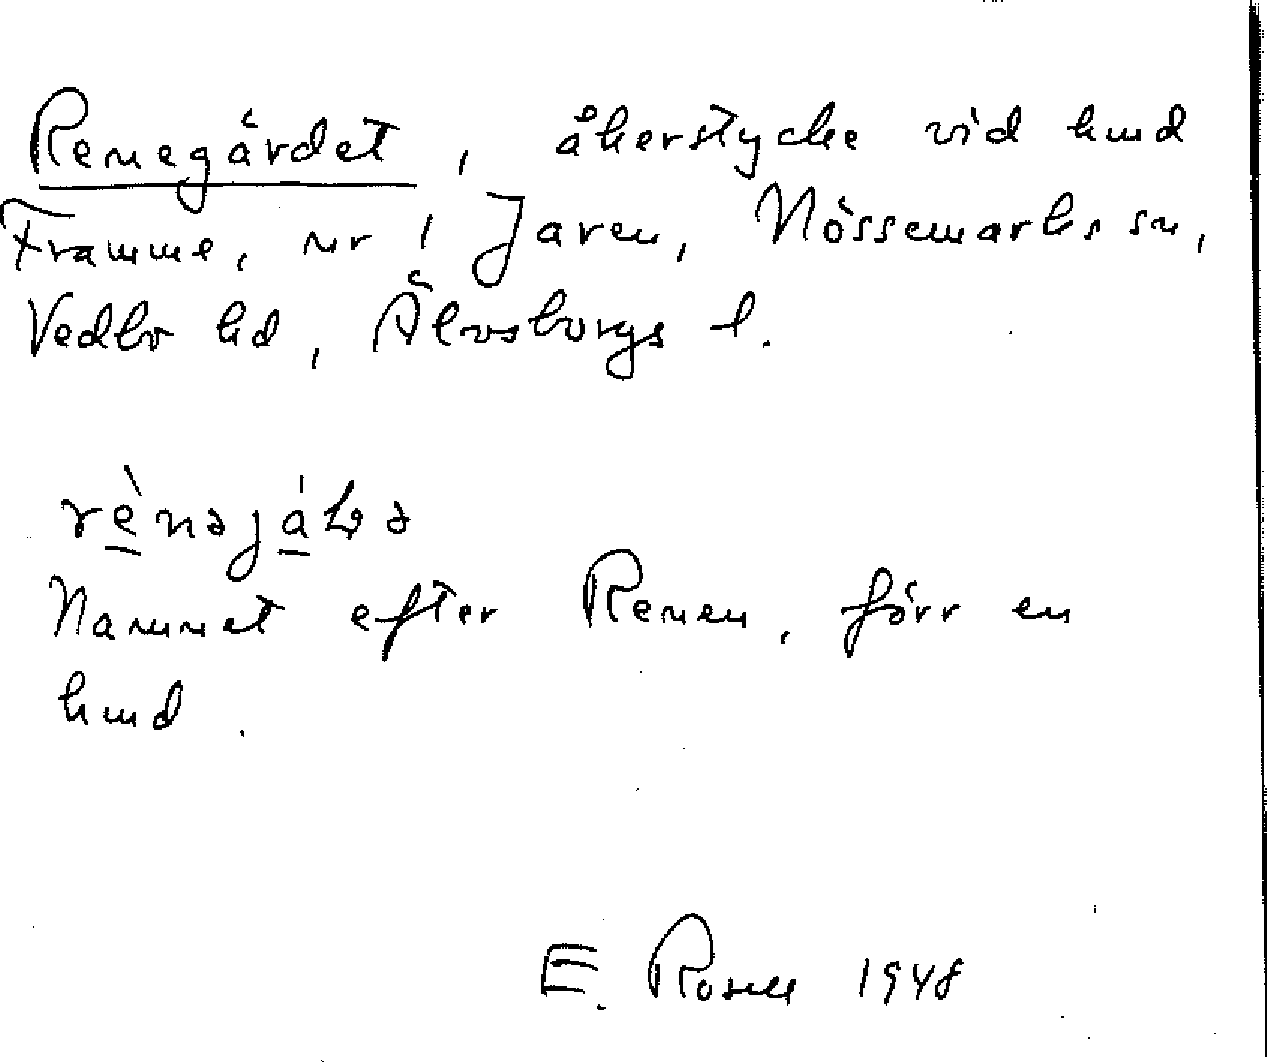 Renegärdet, åkerstycke vid hmd
Framme, nr 1 Jaren, Nössemarks sn,
Vedbo hd, Älvsborgs l.
Namnet efter Renen, förr en
hmd.
E. Rosell 1948